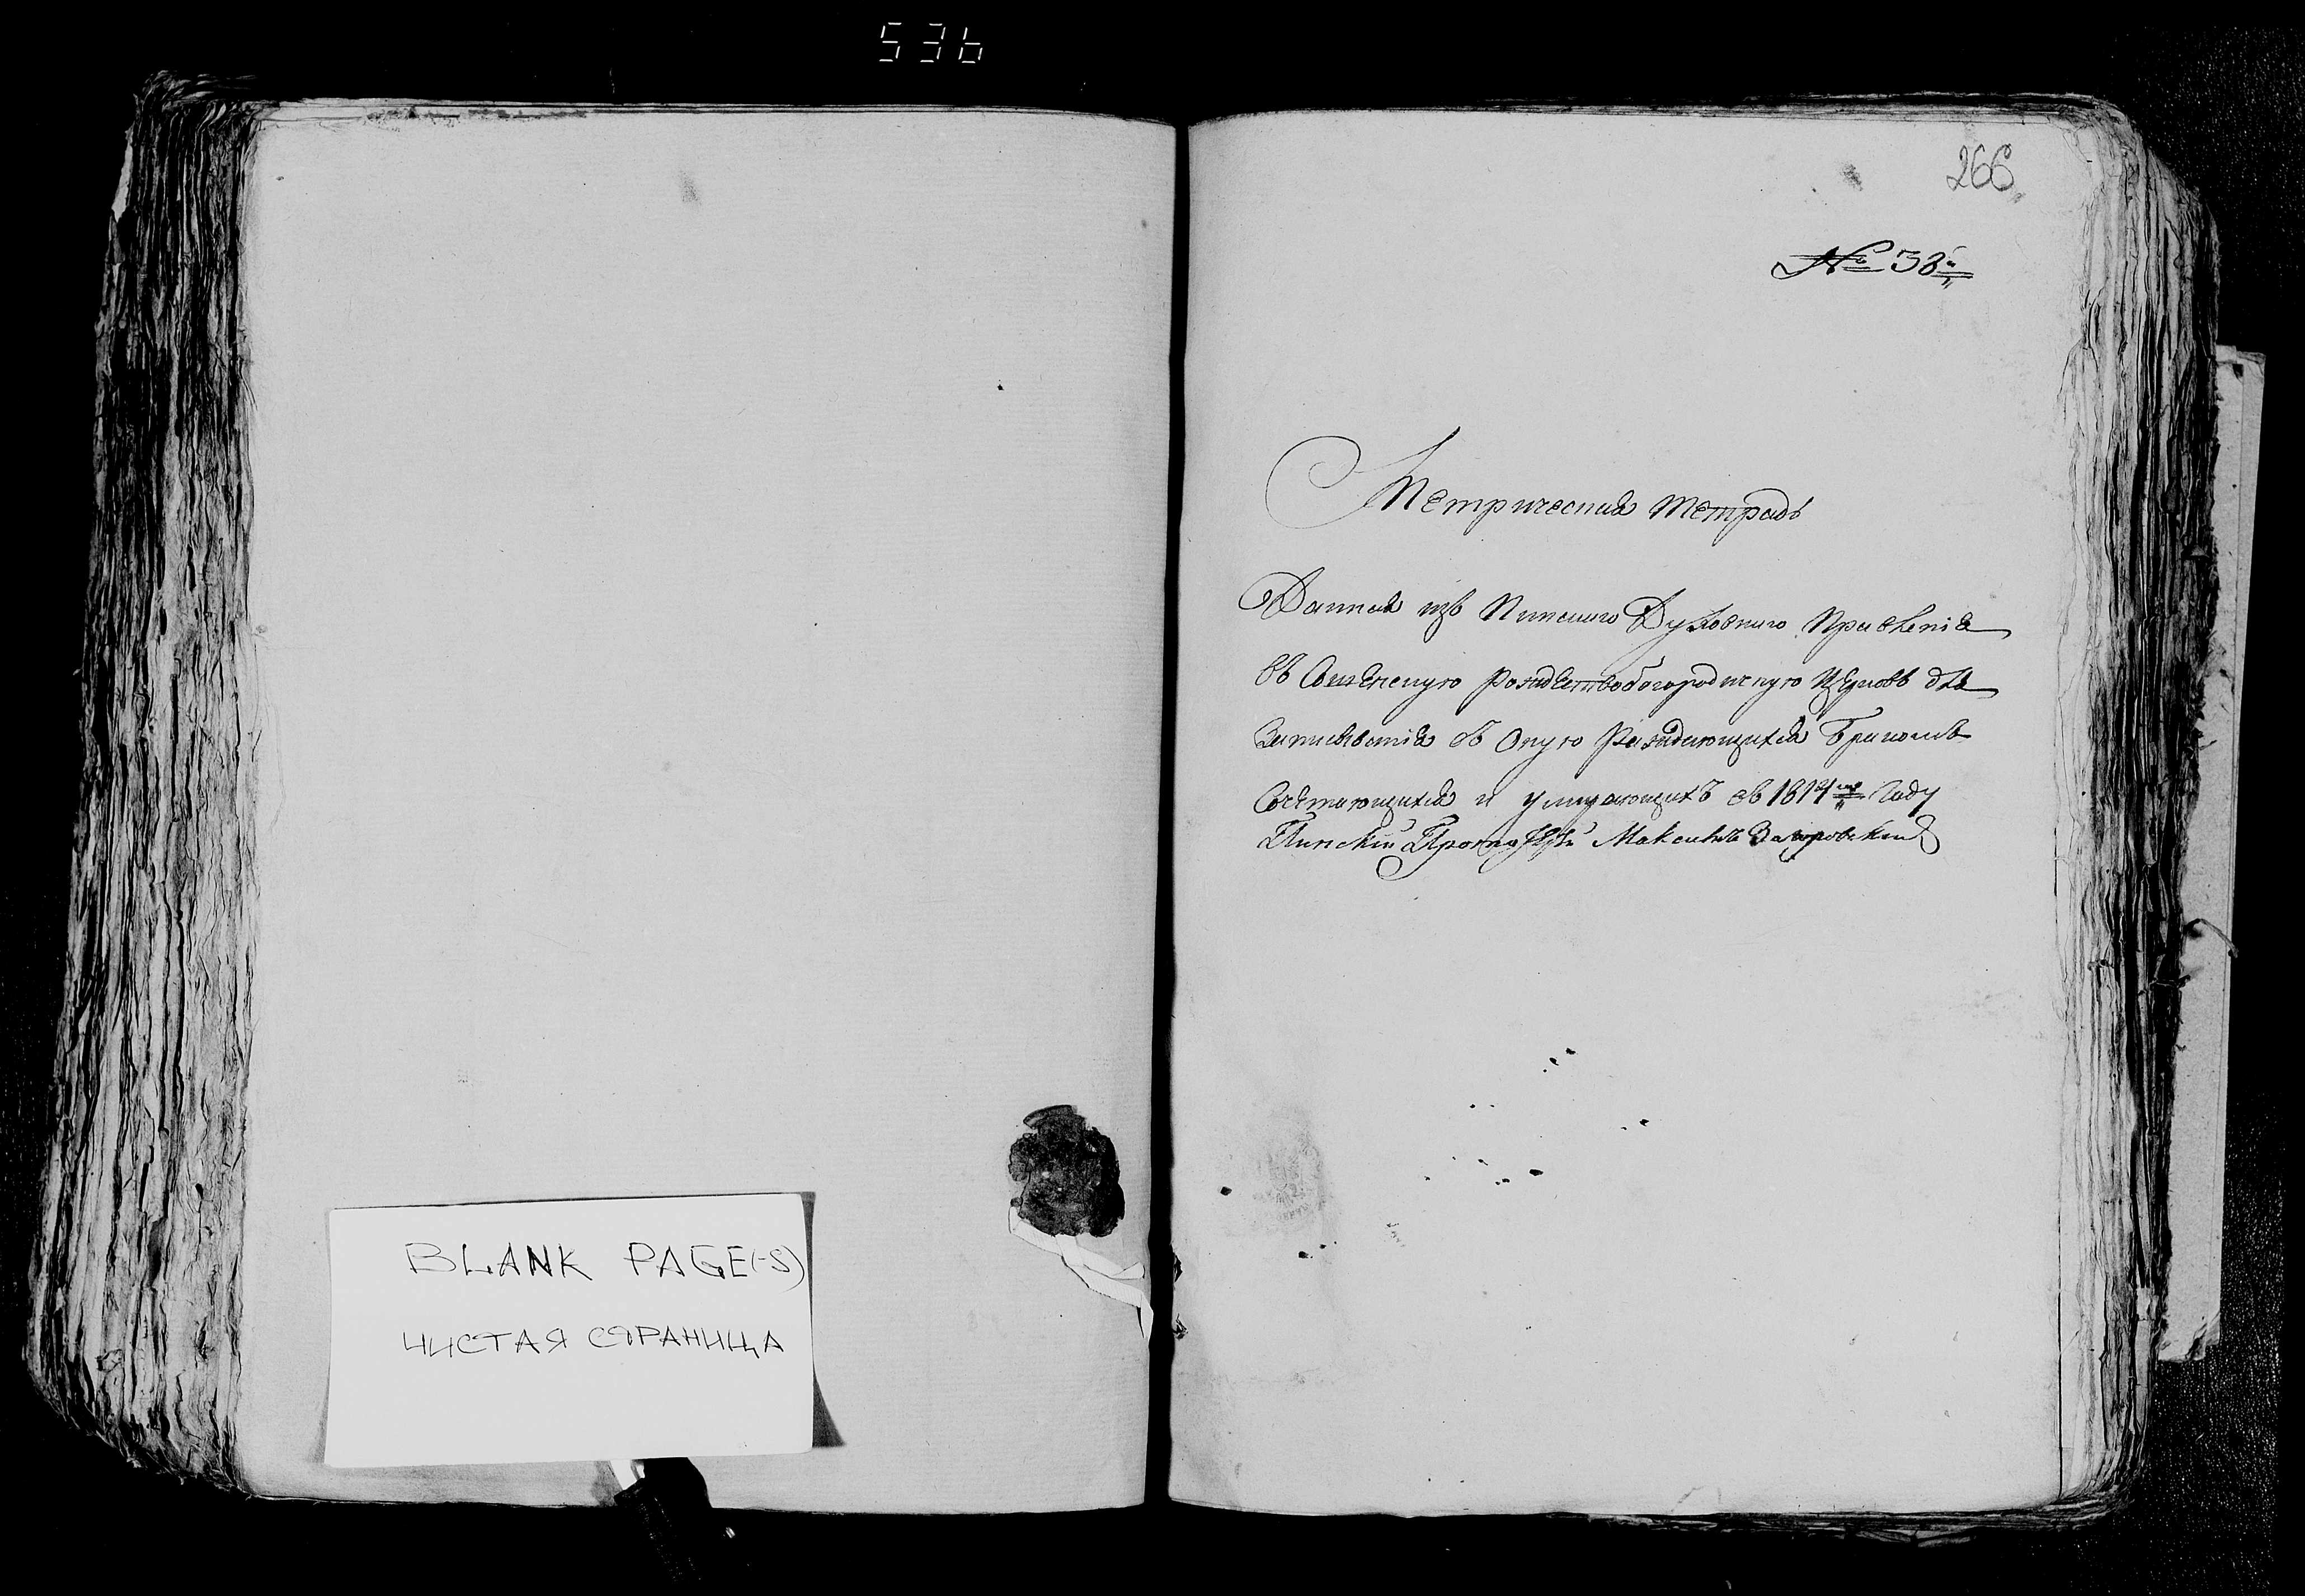 536
266
№ 38
Метрическая тетрадь
Данная изъ Пинского Духовного Правленія
въ Рождествобогородичную Церковь для
Записыванія въ оную Раждающихся Бракомъ
Сочетающихся и умирающихъ въ 1814 Году
Пинскій Протоіерей Максимъ
BLANK PAGE(-S)
ЧИСТАЯ СТРАНИЦА